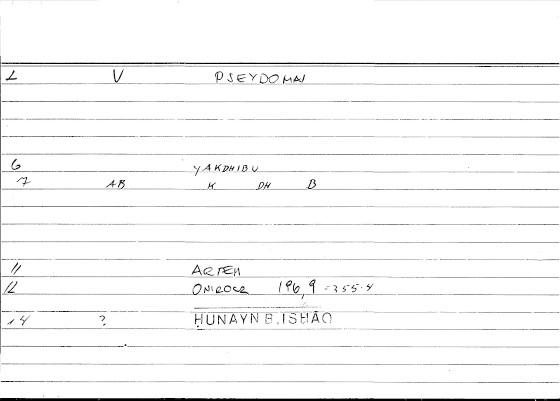 1 V PSEYDOMAI
6 YAKDHIBU
7 AB K DH B
11 ARTEM
12 ONIROCR 196,9 = 355.4
14 ? HUNAYN B. ISHĀQ